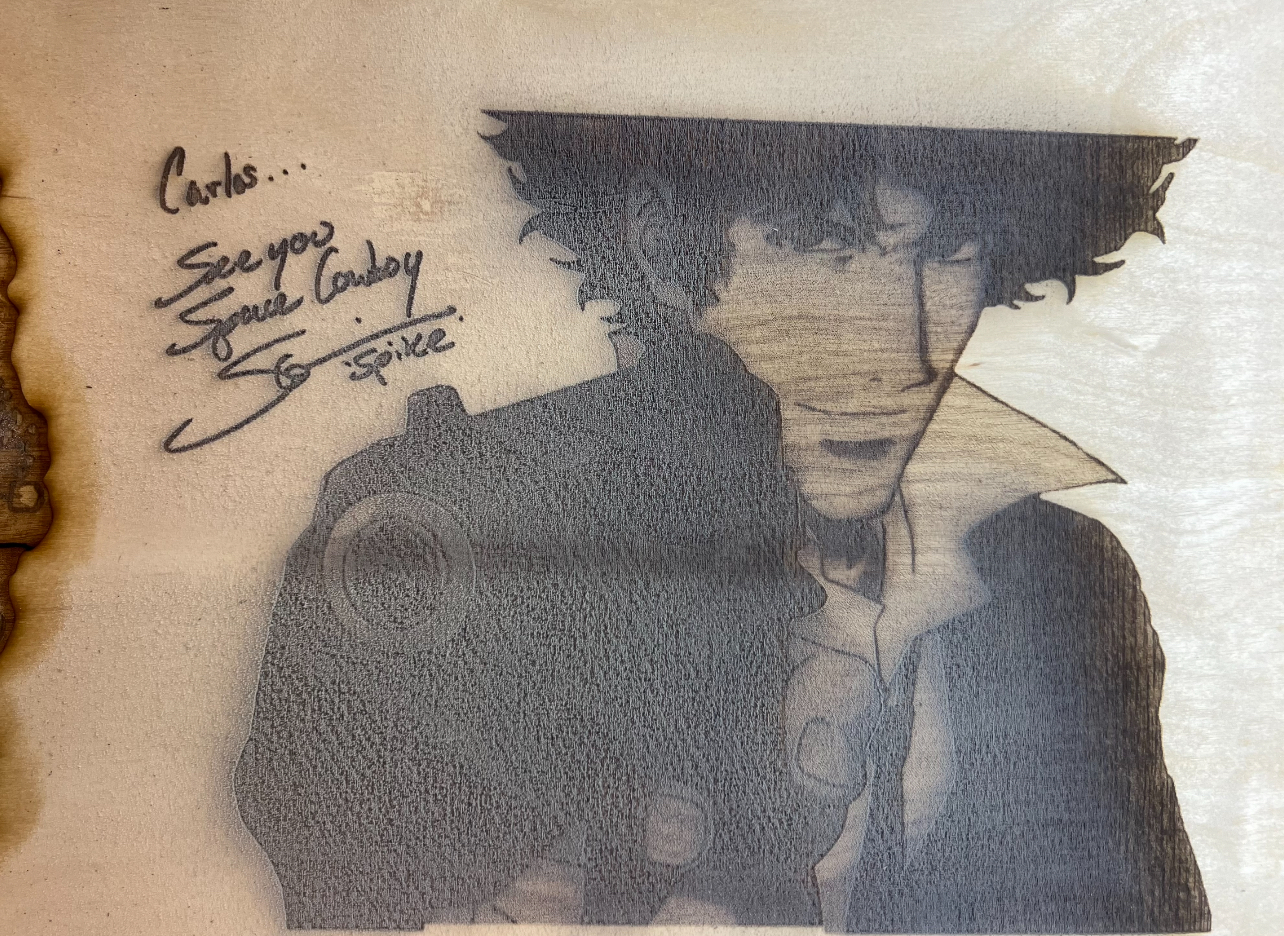 Carlos...
See you
Space Cowboy
Spike